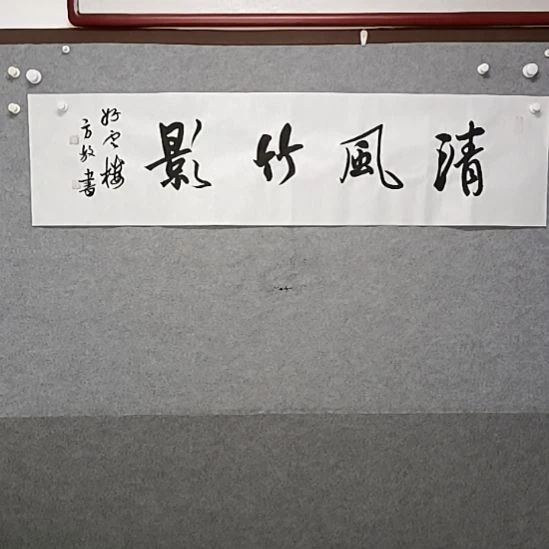 清風竹影
好雲樓
方放書